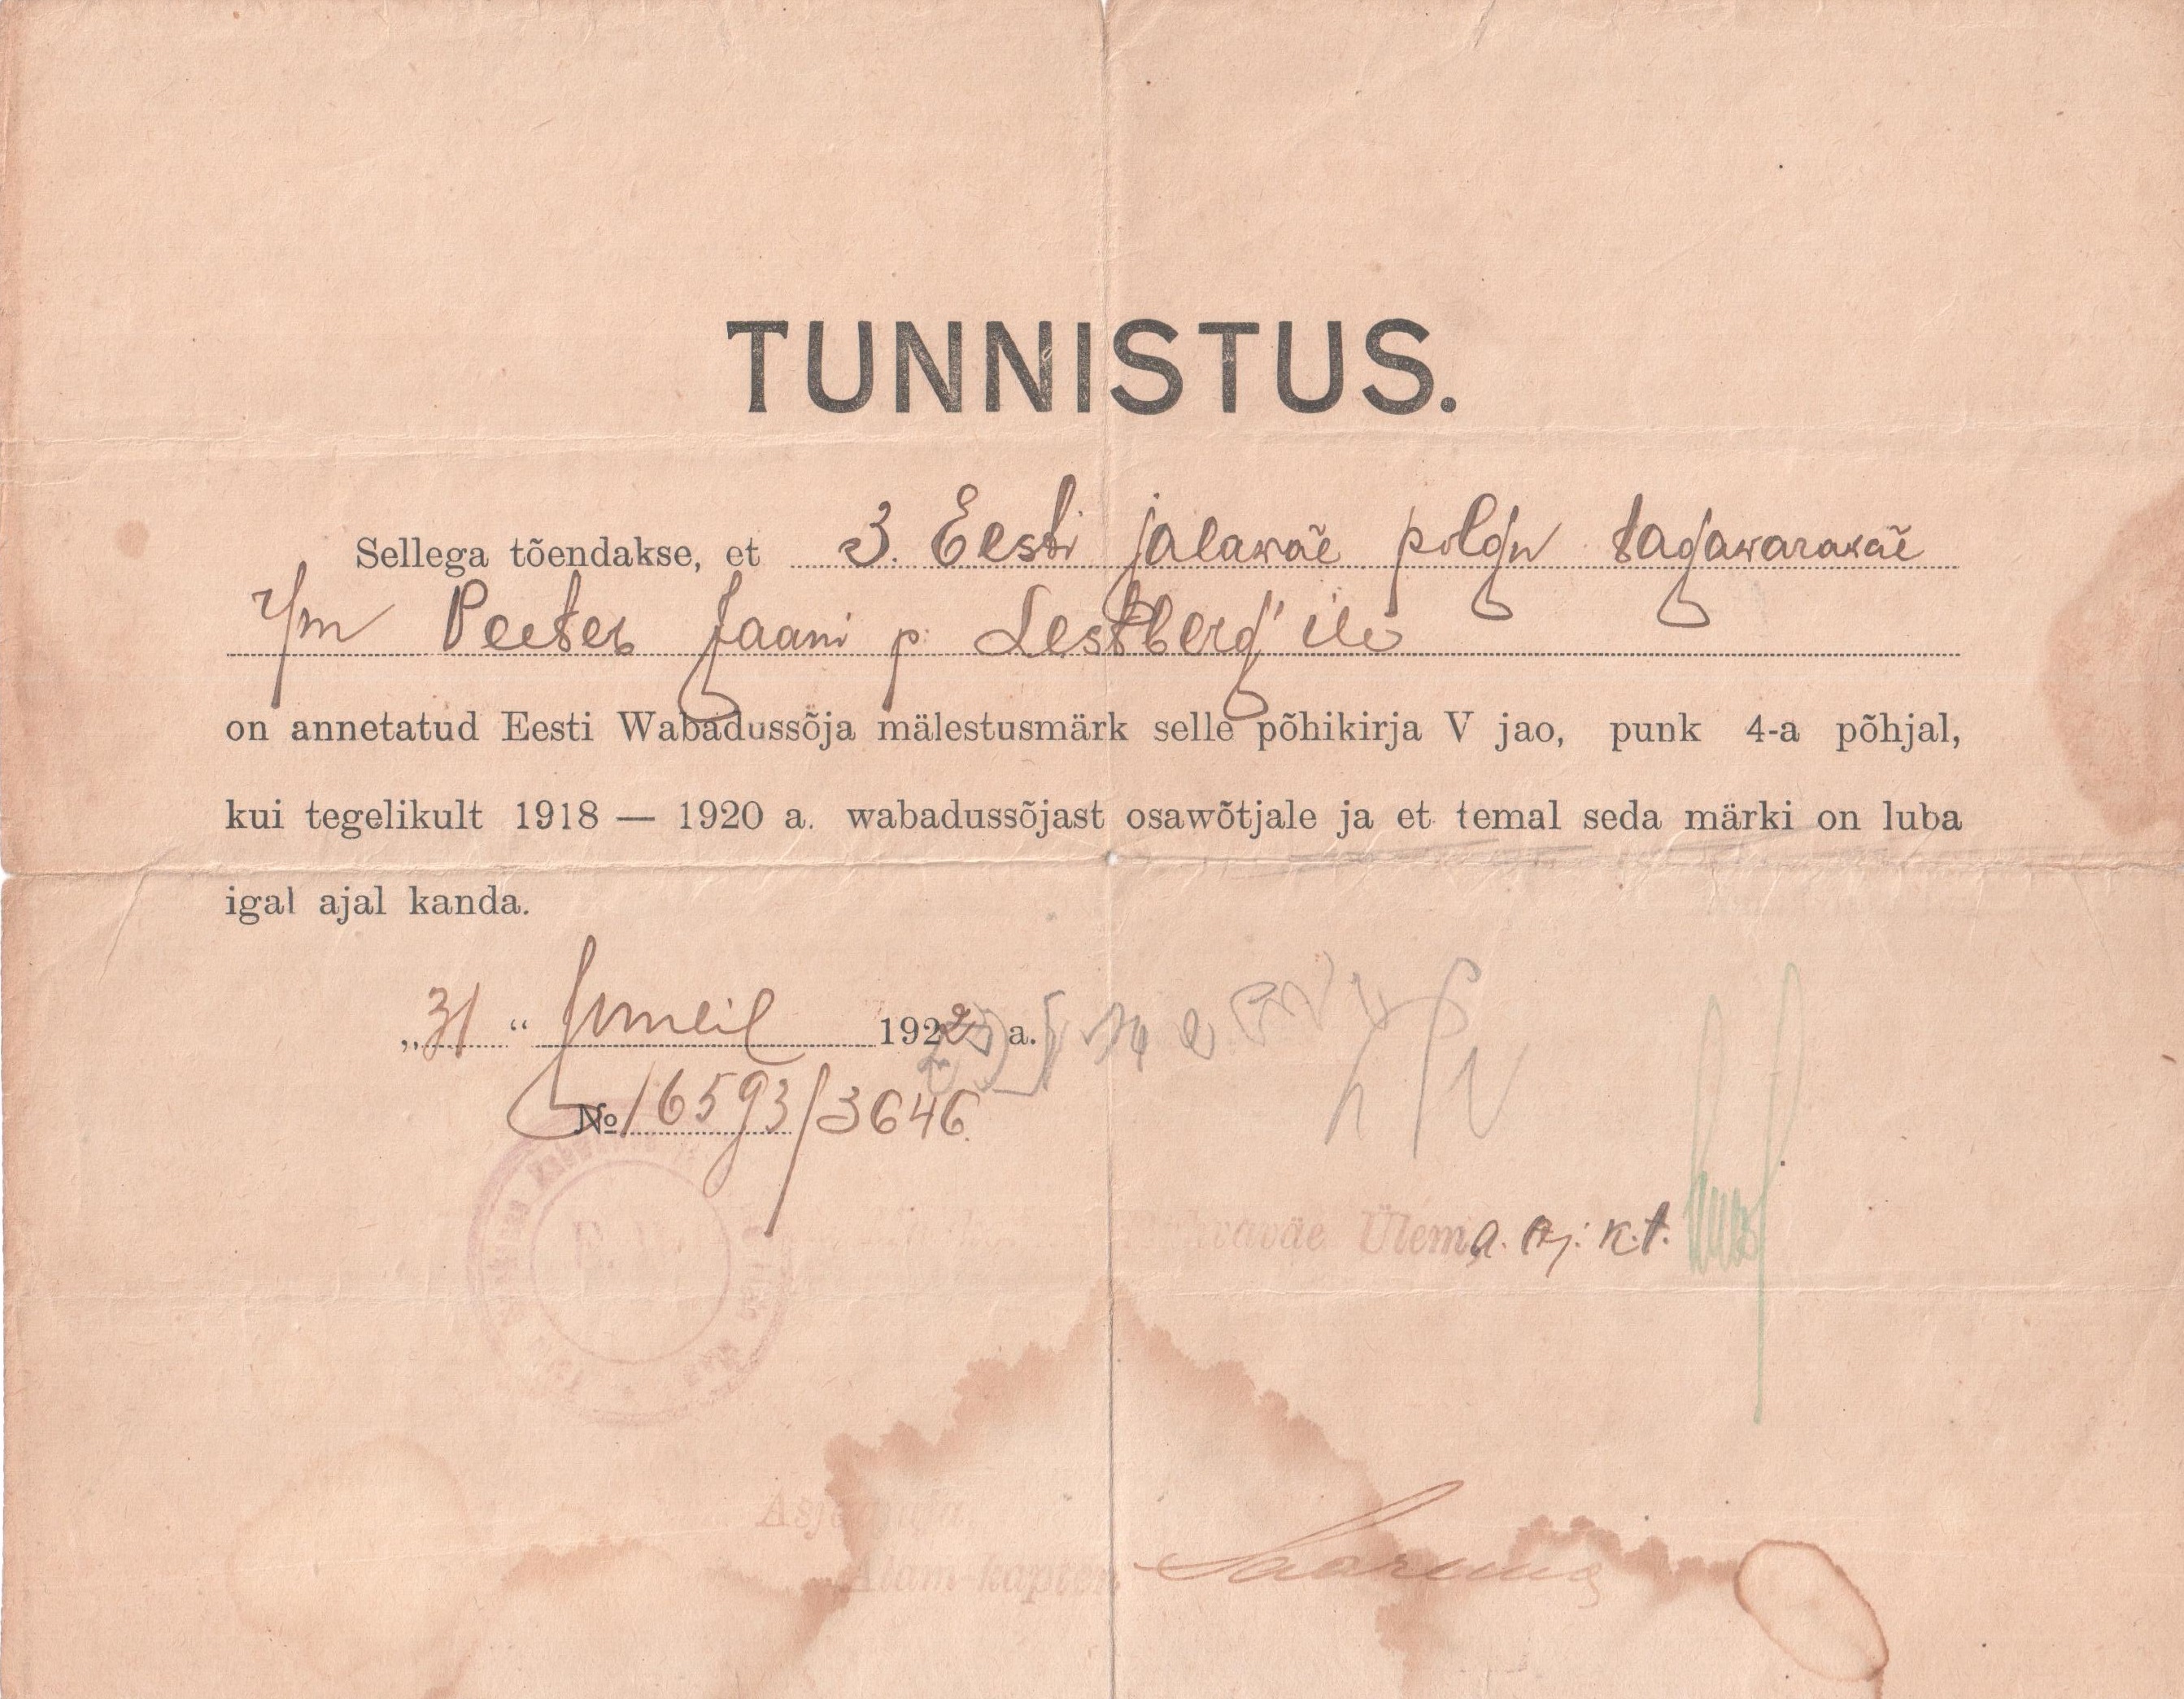 TUNNISTUS.
Sellega tõendakse, et 3. Eesti jalawäe polgu tagawarawäe
r/m Peeter Jaani p. Lestberg'ile
on annetatud Eesti Wabadussõja mälestusmärk selle põhikirja V jao, punk 4-a põhjal,
kui tegelikult 1918 — 1920 a. wabadussõjast osawõtjale ja et temal seda märki on luba
igal ajal kanda.
„31“ 1922 a.
№ 16593/3646.
E. V.
Ülema a. aj. k.t.
Asjaajaja,
Alam-kapten